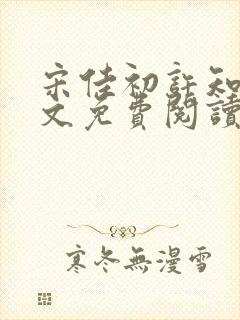 宋佳初許知
文免費閱讀
寒冬無漫雪